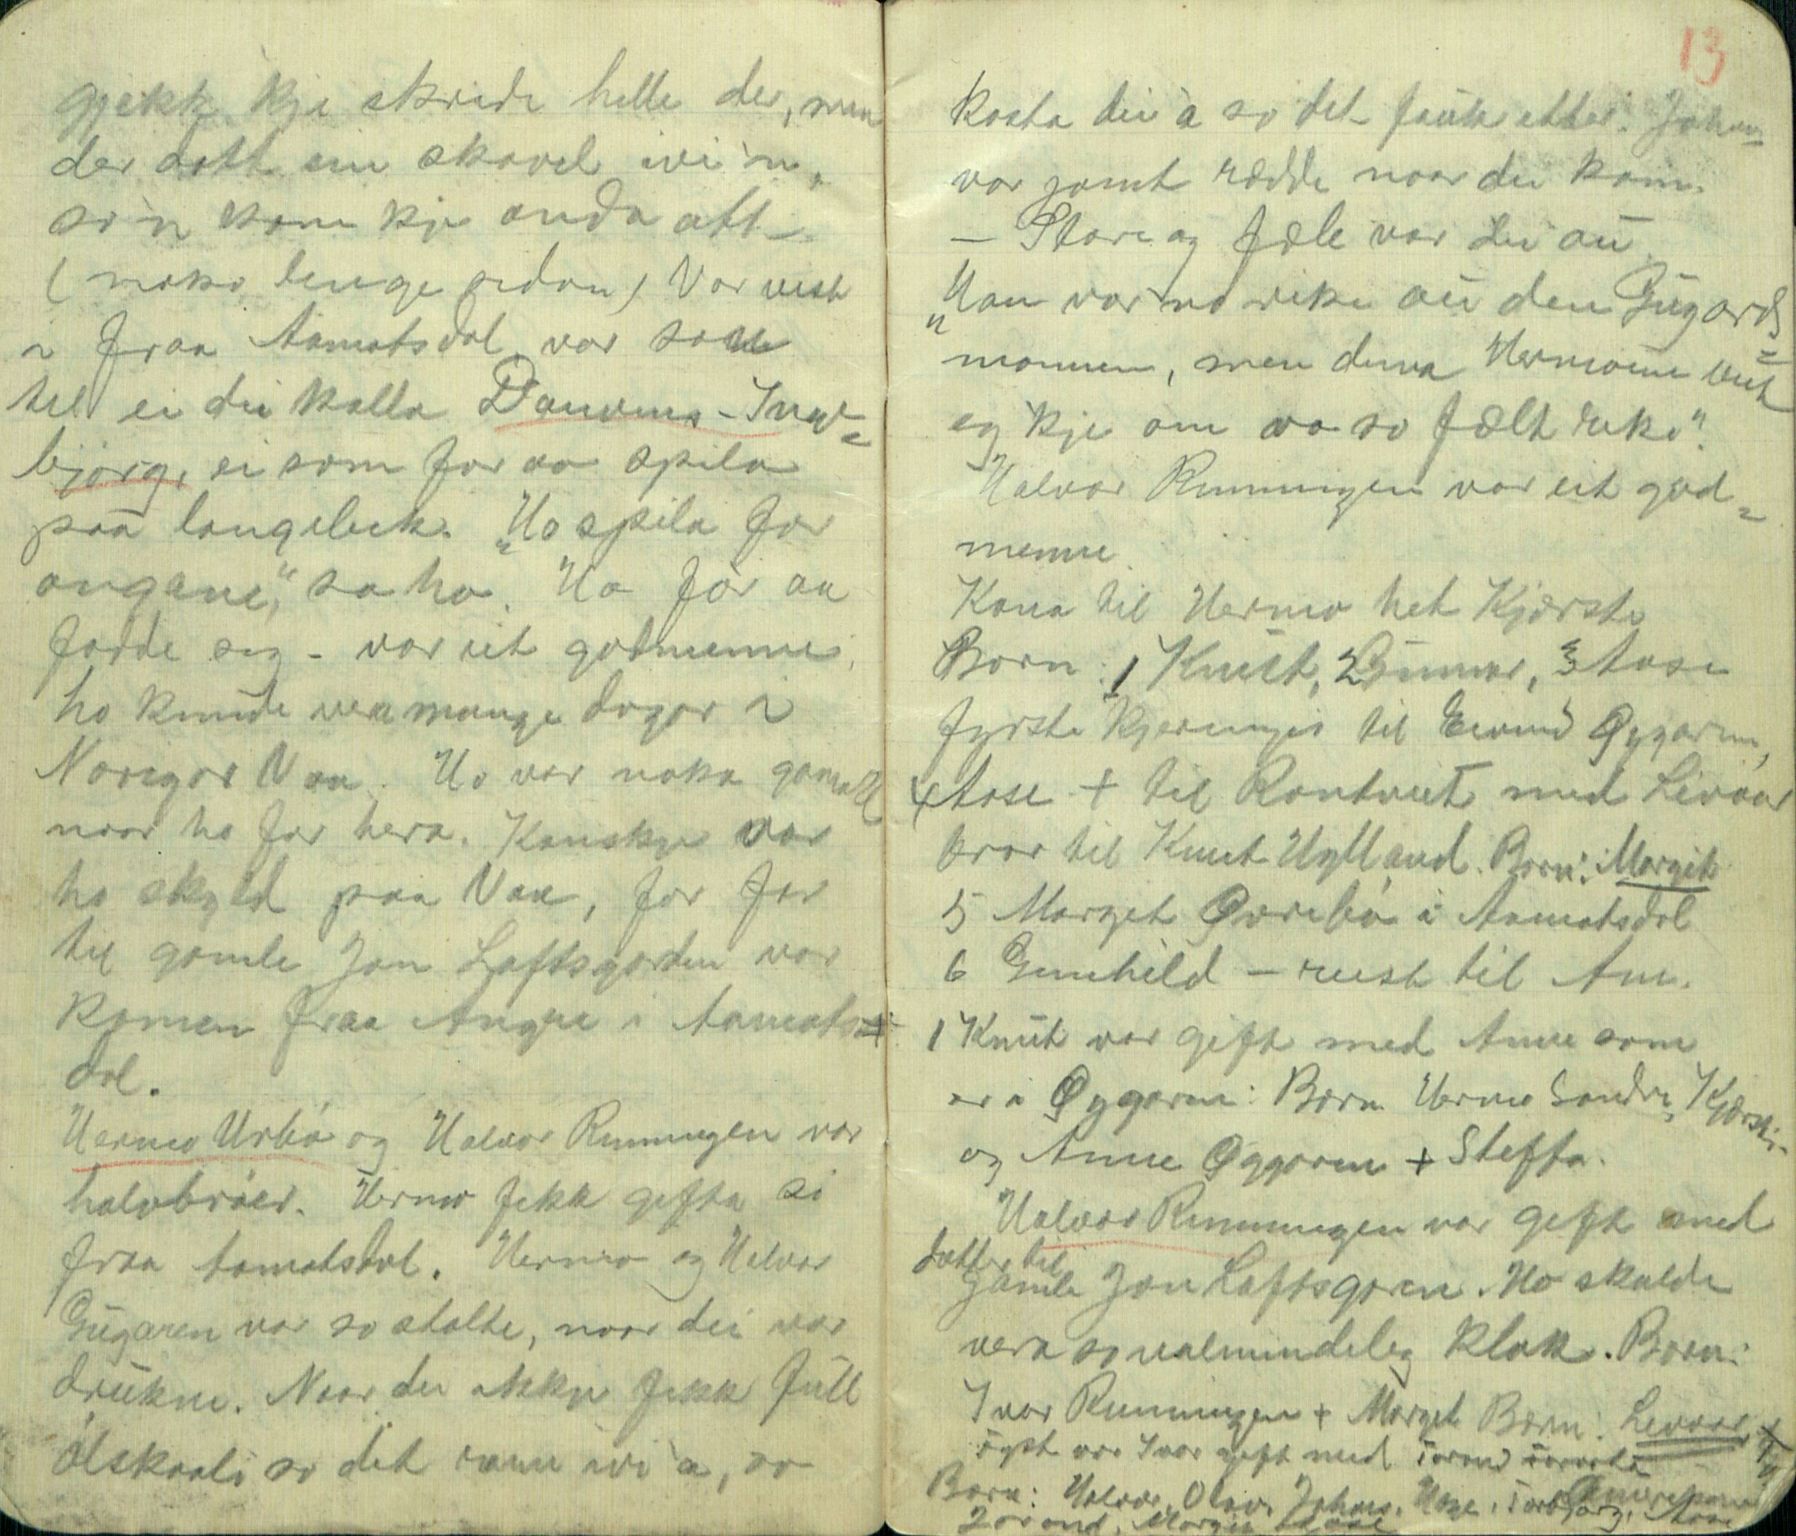 gjekk kje skride helle der, men
der datt ein skavel ivi 'n,
so 'n kom kje onda att
(noko lenge sidan) Var visst
i fraa Aamotsdal var
til ei dei kalla Dauvens-Inge=
bjørg, ei som for aa spila
paa langeleik. "Ho spila for
ongane", sa ho. Ho for aa
fødde seg - var eit godmenne,
ho kunde vera mange dagar i
Norigar Vaa. Ho var noko gamall
naar ho for hera. Kanskje var
ho skyld paa Vaa, for far
til gamle Jon Loftsgarden var
komen fraa Angre i Aamots=
dal.
Hermo Urbø og Halvor Runningen var
halvbrøer. Hermo fekk gifta si
fraa Aamotsdal. Hermo og Halvor
Gugaren var so stolte, naar dei var
drukne. Naar dei ikkje fekk full
ølskaali so det rann ivi a, so
13
kasta dei a so det fauk etter. Johan=
var jamt rædde naar dei kom.
— Store og fæle var dei au
"Han var no rike au den Gugards=
mannen, men denna Hermoen veit
eg kje om va so fælt rike".
Halvor Runningen var eit god=
menne.
Kona til Hermo het Kjærsti
Born: 1 Knut, 2 Gunnar, 3 Aase
fyrste kjeringi til Eivind Øygarden,
4 Aase + til Rontveit med Livaar
bror til Knut Hylland. Born: Margit
5 Margit Øvrebø i Aamotsdal
6 Gunhild — reist til Am.
1 Knut var gift med Anne som
er i Øygaren: Born Hermo Sondre, Kjærsti
og Anne Øygaren + Steffa.
Halvor Runningen var gift med
dotter til
gamle Jon Loftsgaren. Ho skulde
vera so ualmindeleg klok. Born:
Ivar Runningen + Margit Born: Livaar
fyst var Ivar gift med Torond
Born: Halvor, Olav, Johans, Hæge, Torbjørg, Aase
Torond, Margit